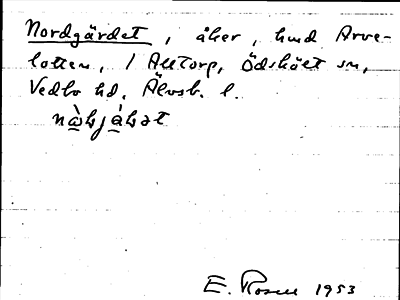 Nordgärdet, åker, hmd Arve-
lotten, 1 Alltorp, Ödskölt sn,
Vedbo hd. Älvsb. l.
E. Rosell 1953